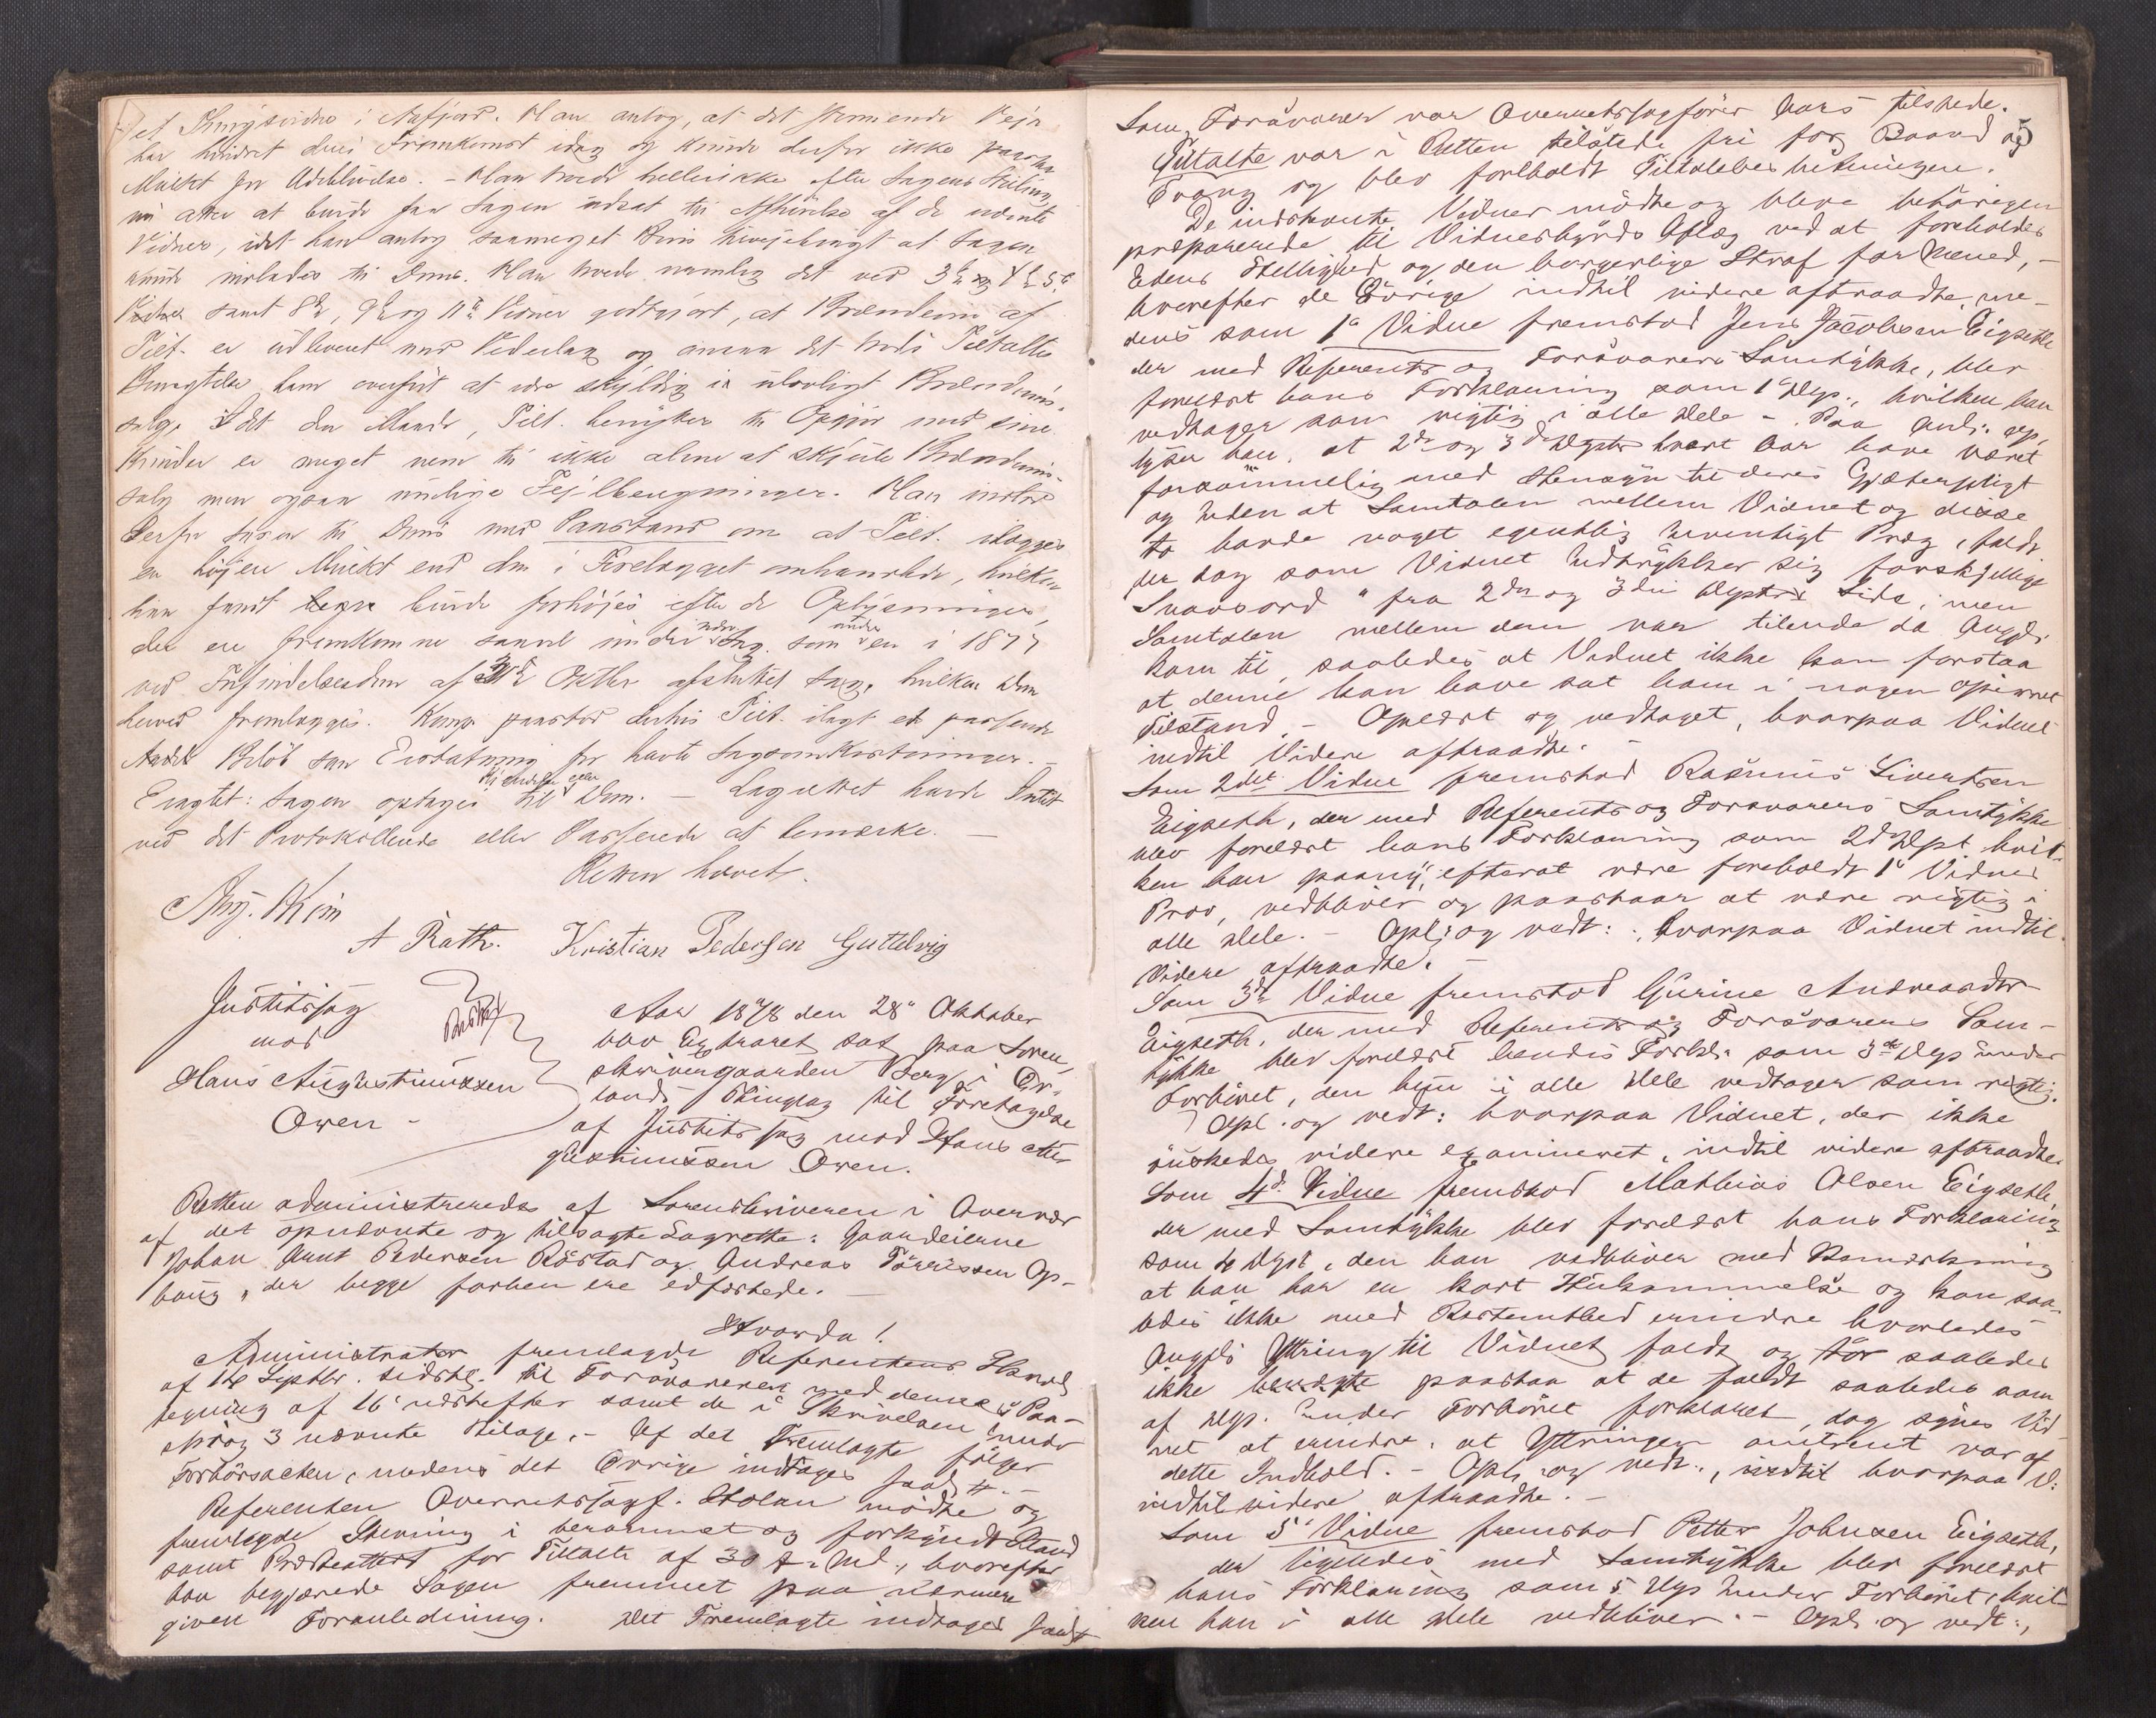 et Thingsvidne i Aafjord. Han antog, at det stormende Vejr
har hindret dens Fremkomst idag og kunde derfor ikke paastaa
Mulkt for Udeblivelse. – Han troede hellerikke efter Sagens Stilling
nu atter at burde faa Sagen udsat til Afhørelse af de udeblevne
Vidner, idet han antog saameget Bevis tilvejebragt at Sagen
kunde indlades til Doms. Han troede nemlig det ved 3die og 4de 5te
Vidner samt 8de, 9de og 11te Vidner godtgjort, at Brændevin af
Tilt. er udleveret mod Vederlag og ansaa det trods Tiltaltes
Benægtelse ham overført at være skyldig i ulovligt Brændevins-
salg. Idet den Maade, Tilt. benytter til Opgjør med sine
Kunder er meget nem til ikke alene at skjule Brændevins-
salg men ogsaa mulige Fejlberegninger. Han indlod
derfor Sagen til Doms med Paastand om at Tilt. ilægges
en højere Mulkt end den i Forelægget omhandlede, hvilken
han fandt burde forhøjes efter de Oplysninger,
der ere fremkomne saavel under Sag. som en i 1877
ved Indfindelsesdom af Oktbr afsluttet Sag, hvilken Dom
herved fremlægges. Komp. paastod derhos Tilt. ilagt et passende
Beløb som Erstatning for havte Sagsomkostninger. –
Eragtet: Sagen optages til Dom. – Lagrettet havde Intet
ved det Protokollerede eller Passerede at bemærke. –
Retten hævet.
A Rath. Kristian Pedersen Guttelvig
Justitssag
mod
Hans Augustinussen
Owen –
Aar 1878 den 28 Oktober
blev Extraret sat paa Soren-
skrivergaarden Berg i Ør-
lands Thinglag til Foretagelse
af Justitssag mod Hans Au-
gustinussen Owen.
Retten administreredes af Sorenskriveren i Overvær
af det opnævnte og tilsagte Lagrette: Gaardeierne
Johan Arnt Pedersen Røstad og Andreas Tørrissen Op-
houg, der begge forhen ere edfæstede. –
Hvorda!
Administrator fremlagde Referentens Skrivelse
af 14 Septbr. sidstl. til Forsvareren med dennes Paa-
tegning af 16 næstefter samt de i Skrivelsen under
3 nævnte Bilage. – Af det Fremlagte følger
Forhørsacten, medens det Øvrige indtages saal. –
Referenten Overretssagf. Holan mødte og
fremlagde Stevning i berammet og forkyndt Stand
samt Præsteattest for Tiltalte af 30 f. Md., hvorefter
han begjærede Sagen fremmet paa nærmere
given Foranledning. Det Fremlagte indtages saal.
Som Forsvarer var Overretssagfører Aars tilstede.
Tiltalte var i Retten tilstede fri for Baand og
Tvang og blev foreholdt Tiltalebeslutningen.
De indstevnte Vidner mødte og bleve behørigen
præparerede til Vidnesbyrds Aflæg ved at foreholdes
Edens Hellighed og den borgerlige Straf for Mened, –
hvorefter de Øvrige indtil videre aftraadte, me-
dens som 1ste Vidne fremstod Jens Jacobsen Eigseth
der med Referents og Forsvarers Samtykke, blev
forelæst hans Forklaring som 1ste Dep., hvilken han
vedtager som rigtig i alle Dele – Paa Anl. op-
lyser han, at 2det og 3die Deptr hvert Aar have været
forsømmelig med Hensyn til deres Gjæterpligt
og uden at Samtalen mellem Vidnet og disse
to havde noget egentlig Præg, faldt
der dog som Vidnet udtrykker sig forskjellige
"Svarsord" fra 2den og 3die Deptrs Side; men
Samtalen mellem dem var tilende da Angjld.
kom til, saaledes at Vidnet ikke kan forstaa
at denne kan have sat ham i nogen opirret
Tilstand. – Oplæst og vedtaget, hvorpaa Vidnet
indtil Videre aftraadte. –
Som 2det Vidne fremstod Rasmus Sivertsen
Eigseth, der med Referents og Forsvarers Samtykke
blev forelæst hans Forklaring som 2det Dept hvil-
ken han paany, efterat være foreholdt 1ste Vidnes
Prov, vedbliver og paastaar at være rigtig i
alle Dele. – Opl. og vedt:, hvorpaa Vidnet indtil
Videre aftraadte. –
Som 3die Vidne fremstod Gurine Andreasdtr
Eigseth, der med Referents og Forsvarers Sam-
tykke blev forelæst hendes Forkl. som 3die Dep under
Forhøret, den hun i alle Dele vedtager som rigtig.
Opl. og vedt: hvorpaa Vidnet, der ikke
ønskedes videre examineret, indtil videre aftraadte.
Som 4de Vidne fremstod Mathias Olsen Eigseth
der med Samtykke blev forelæst hans Forklaring
som 4 Dept, den han vedbliver med Bemærkning
at han har en kort Hukommelse og kan saa-
ledes ikke med Bestemthed erindre hvorledes
Angjlds Yttring til Vidnet faldt og tør saaledes
ikke paastaa at de faldt saaledes som
af Dep. under Forhøret forklaret, dog synes Vid-
net at erindre, at Yttringen omtrent var af
dette Indhold. – Opl. og vedt:, hvorpaa V.
indtil videre aftraadte. –
Som 5te Vidne fremstod Petter Johnsen Eigseth,
der ligeledes med Samtykke blev forelæst
hans Forklaring som 5 Dep under Forhøret, hvil-
ken han i alle Dele vedbliver. – Opl. og vedt:,